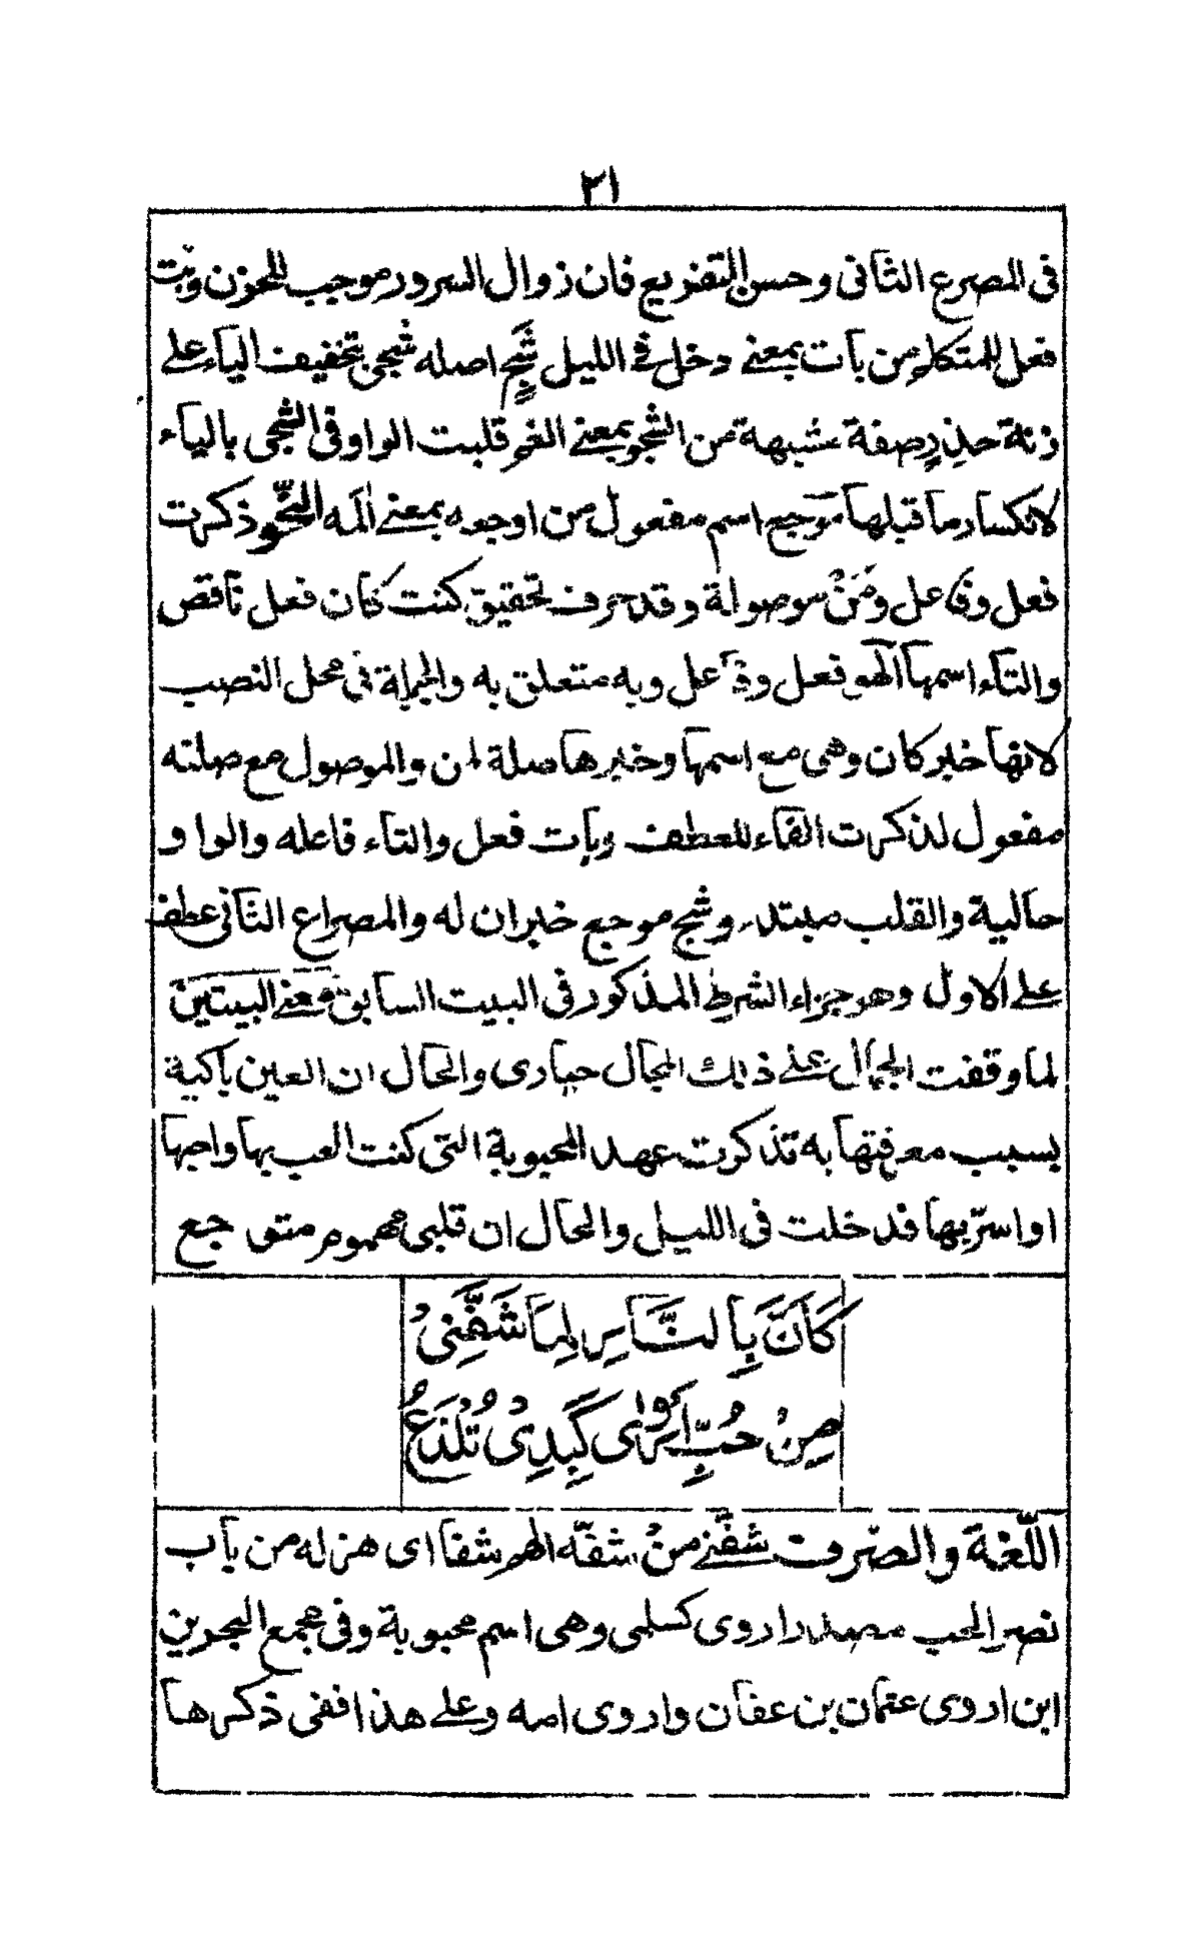 ٢١
فى المصرع الثانى وحسن التفريع فان زوال السرور موجب للحزن وبت
فعل المتكلم من بات بمعنى دخل فى الليل شَجٍ اصله شجى بتخفيف الياء على
زنة حذِرٍ صفة مشبهة من الشجو بمعنى الغم قلبت الواو فى الشجى بالياء
لانكسار ما قبلها موجع اسم مفعول من اوجعه بمعنى المه النَّحو ذكرت
فعل وفاعل ومَنْ موصولة وقد حرف تحقيق كنت كان فعل ناقص
والتاء اسمها الهو فعل وفاعل وبه متعلق به والجملة فى محل النصب
لانها خبر كان وهى مع اسمها وخبرها صلة لمن والموصول مع صلته
مفعول لذكرت الفاء للعطف وبات فعل والتاء فاعله والواو و
حالية والقلب مبتدء وشج موجع خبران له والمصراع الثانى عطف
على الاول وهو جزاء الشرط المذكور فى البيت السابق ومعنى البيتين
لما وقفت الجمال على ذلك المجال حيارى والحال ان العين باكية
بسبب معرفتها به تذكرت عهد المحبوبة التى كنت العب بها واحبها
او اسرّ بها فدخلت فى الليل والحال ان قلبى مهموم متوجع
كَاَنَّ بِالنَّاسِ لِمَا شَفَّنِىْ
مِنْ حُبِّ اَرْوٰى كَبِدِىْ تُلْذَعُ
اللّغة والصّرف شفّنى منْ شفّه الهم شفا اى هزله من باب
نصر الحب مصدر اروى كسلمى وهى اسم محبوبة وفى مجمع البحرين
ابن اروى عثمان بن عفان واروى امه وعلى هذا ففى ذكرها